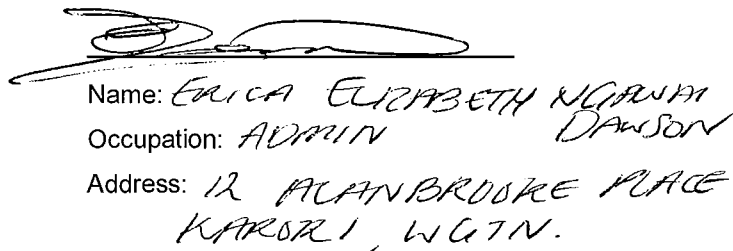 Name: ERICA ELIZABETH NGAWAI
DAWSON
Occupation: ADMIN
Address: 12 ALANBROOKE PLACE
KARORI, WGTN.